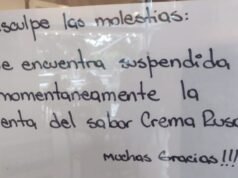 sculpe las molestias:
e encuentra suspendida
momentaneamente la
enta del sabor Crema Rusa
Muchas Gracias!!!